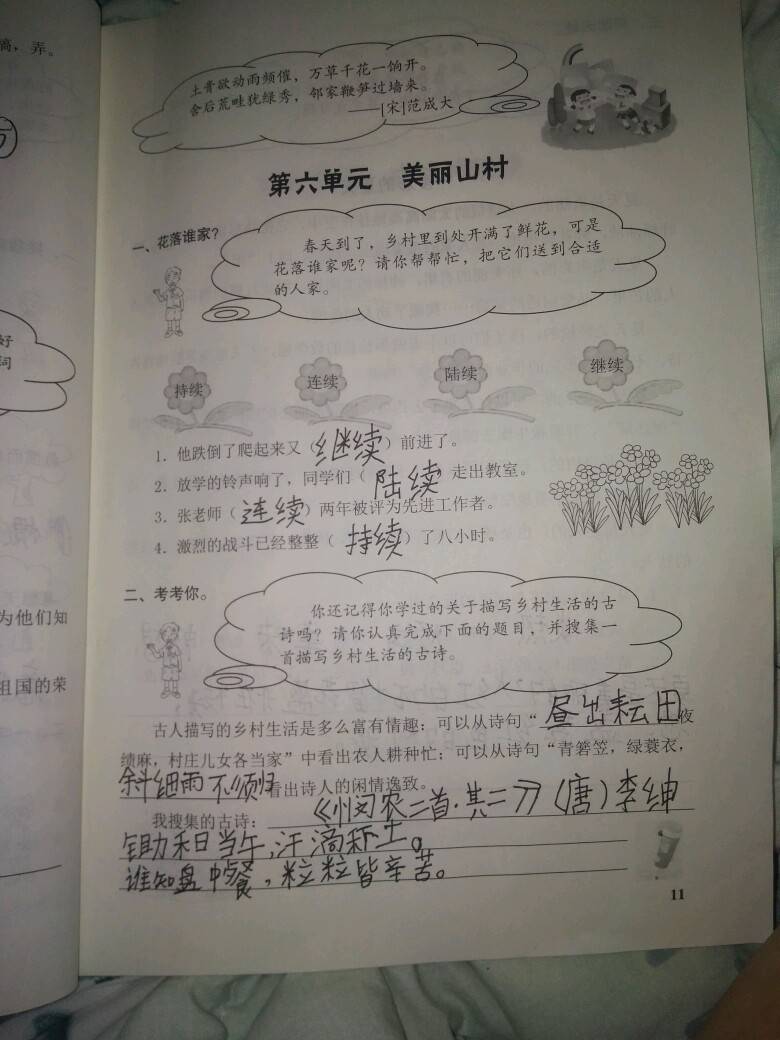 滴，弄。
土膏欲动雨频催，万草千花一饷开。
舍后荒畦犹绿秀，邻家鞭笋过墙来。
——[宋]范成大
第六单元 美丽山村
一、花落谁家？
春天到了，乡村里到处开满了鲜花，可是
花落谁家呢？请你帮帮忙，把它们送到合适
的人家。
好
词
持续 连续 陆续 继续
1．他跌倒了爬起来又（继续）前进了。
2．放学的铃声响了，同学们（陆续）走出教室。
3．张老师（连续）两年被评为先进工作者。
4．激烈的战斗已经整整（持续）了八小时。
二、考考你。
你还记得你学过的关于描写乡村生活的古
诗吗？请你认真完成下面的题目，并搜集一
首描写乡村生活的古诗。
为他们知
祖国的荣
古人描写的乡村生活是多么富有情趣：可以从诗句“昼出耘田夜
绩麻，村庄儿女各当家”中看出农人耕种忙；可以从诗句“青箬笠，绿蓑衣，
斜细雨不须归看出诗人的闲情逸致。
我搜集的古诗：《悯农二首·其二》（唐）李绅
锄禾日当午，汗滴禾土。
谁知盘中餐，粒粒皆辛苦。
11